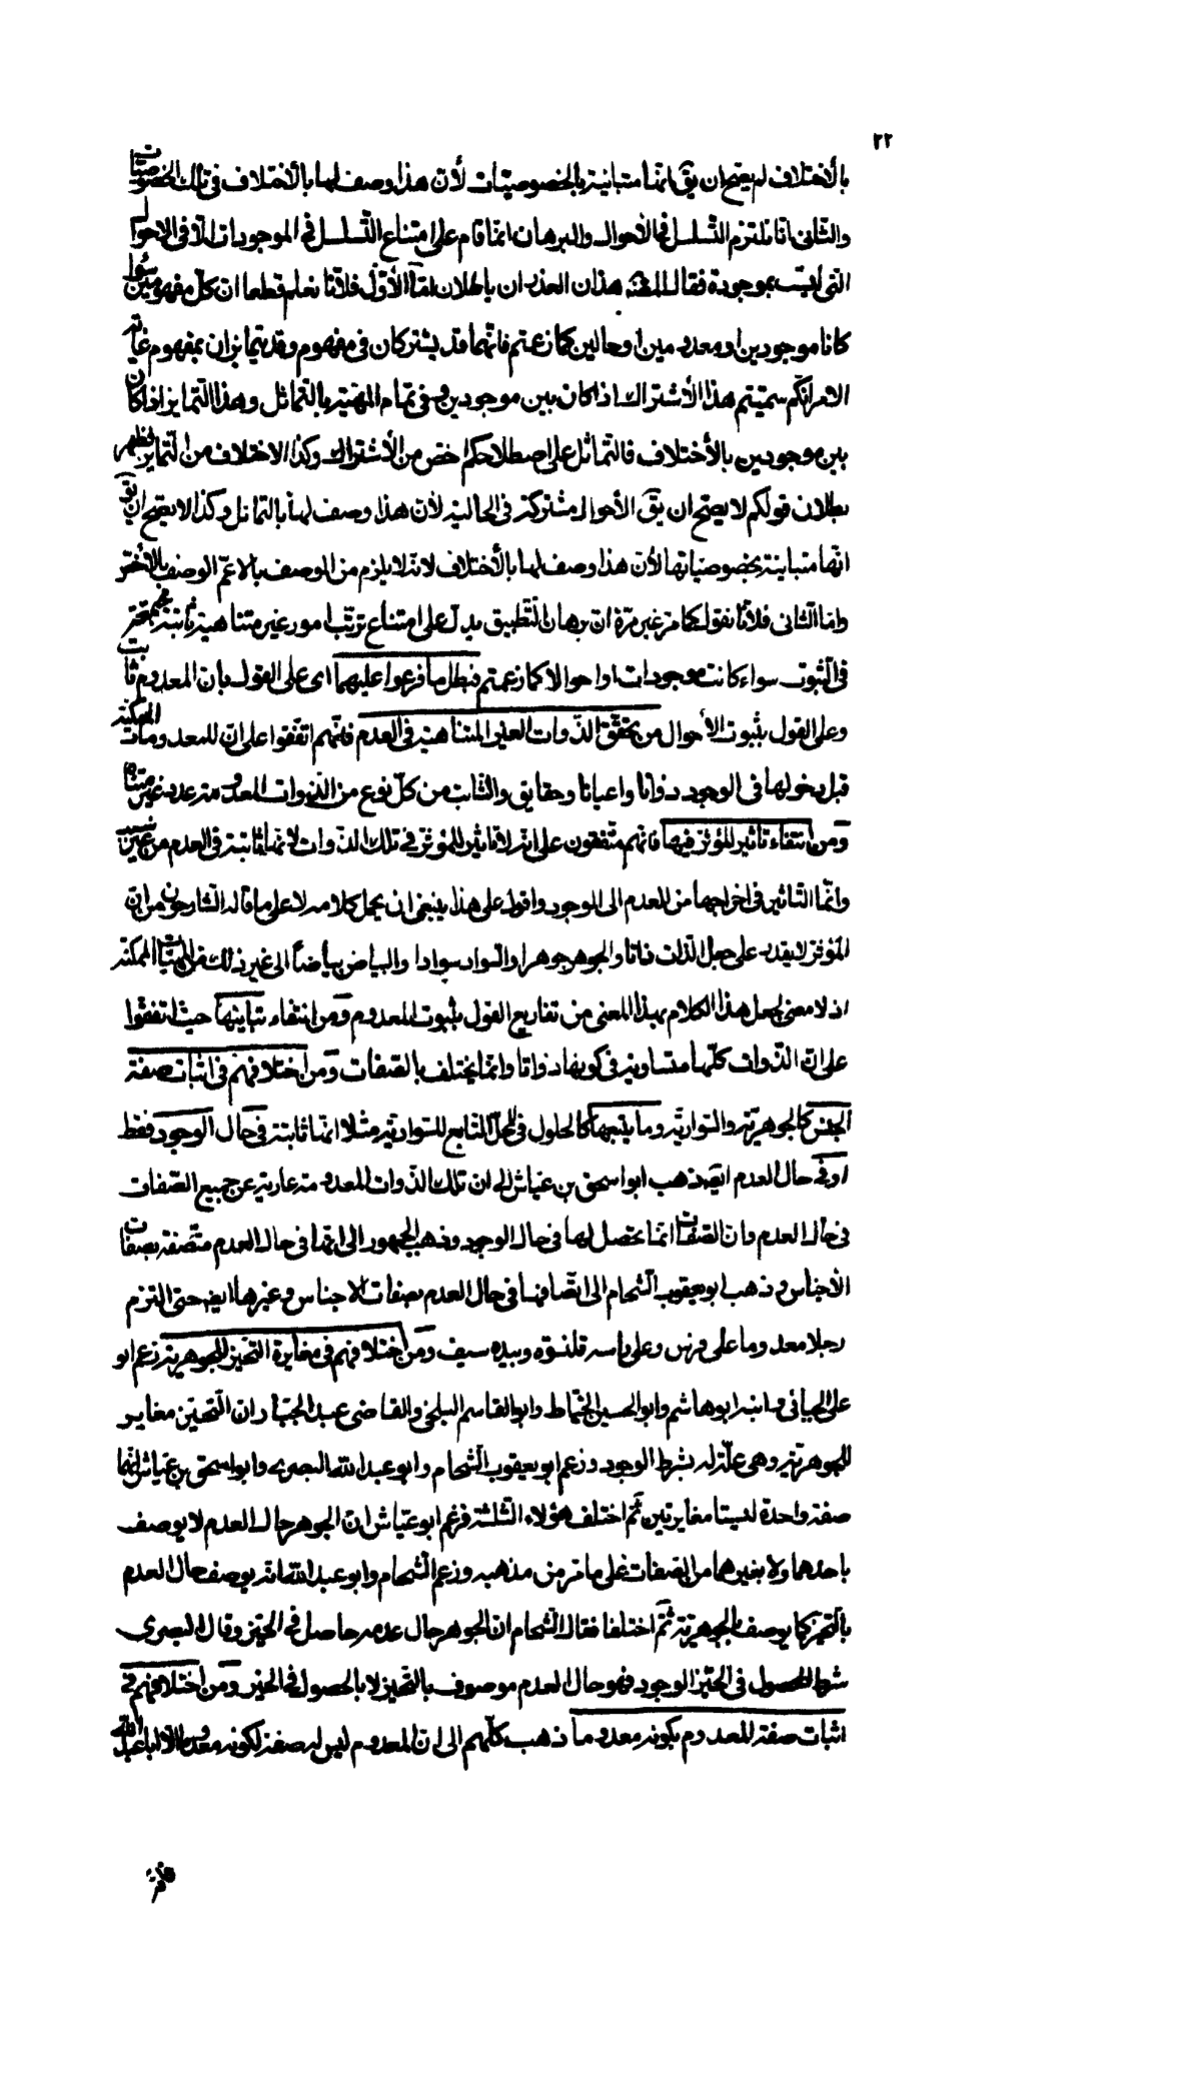 ٢٢
بالأختلاف لم يصحّ ان يقَ انّها متباينة بالخصوصيّات لأنّ هذا وصف لها بالأختلاف فى تلك الخصوصيّات
والثّانى انّا نلتزم التّسلسل فى الأحوال والبرهان انّما قام على امتناع التّسلسل فى الموجودات لا فى الاحوال
الّتى ليست بموجودة فقال المصَ هذان العذران باطلان امّا الأوّل فلأنّا نعلم قطعا انّ كلّ مفهومين سواء
كانا موجودين او معدومين او حالين كما زعمتم فانّهما قد يشتركان فى مفهوم وقد يتمايزان بمفهوم غاية
الامر انّكم سمّيتم هذا الأشتراك اذا كان بين موجودين وفى تمام المهيّة بالتّماثل وهذا التّمايز اذا كان
بين موجودين بالأختلاف فالتّماثل على اصطلاحكم اخصّ من الأشتراك وكذا الاختلاف من التّمايز فظهر
بطلان قولكم لا يصحّ ان يقَ الأحوال مشتركة فى الحالية لأنّ هذا وصف لها بالتّماثل وكذا لا يصحّ ان يقَ
انّها متباينة بخصوصيّاتها لأنّ هذا وصف لها بالأختلاف لانّه لا يلزم من الوصف بالاعمّ الوصف بالاخصّ
وامّا الثّانى فلأنّا نقول كما مرّ غير مرّة انّ برهان التّطبيق يدلّ على امتناع ترتّب امور غير متناهية ثابتة مجتمعة
فى الثّبوت سواء كانت موجودات او احوالا كما زعمتم فبطل ما فرعوا عليهما اى على القول بان المعدوم ثابت
وعلى القول بثبوت الأحوال من تحقّق الذّوات الغير المتناهية فى العدم فانّهم اتّفقوا على انّ للمعدومات الممكنة
قبل دخولها فى الوجود ذوانا واعيانا وحقايق والثّابت من كلّ نوع من الذّوات المعدومة عدد غير متناه
ومن انتفاء تأثير المؤثر فيها فانّهم متّفقون على انّه لا تأثير للمؤثر فى تلك الذّوات لانّها ثابتة فى العدم من غير سبب
وانّما التّأثير فى اخراجها من العدم الى الوجود واقول على هذا ينبغى ان يحمل كلامه لا على ما قاله الشّارحون من انّ
المؤثر لا يقدر على جعل الذّات ذاتا والجوهر جوهرا والسّواد سوادا والبياض بياضًا الى غير ذلك من المهيّات الممكنة
اذ لا معنى لجعل هذا الكلام بهذا المعنى من تفاريع القول بثبوت المعدوم ومن انتفاء تباينها حيث اتفقوا
على انّ الذّوات كلّها متساوية فى كونها ذواتا وانّما يختلف بالصّفات ومن اختلافهم فى اثبات صفة
الجنس كالجوهريّة والسّواديّة وما يتبعها كالحلول فى المحلّ التّابع للسّواديّة مثلا انّها ثابتة فى حال الوجود فقط
او فى حال العدم ايضَ ذهب ابو اسحق بن عيّاش الى ان تلك الذّوات المعدومة عارية عن جميع الصّفات
فى حال العدم وان الصّفات انّما يحصل لها فى حال الوجود وذهب الجمهور الى انّها فى حال العدم متّصفة بصفات
الأجناس وذهب ابو يعقوب الشّحام الى اتّصافها فى حال العدم بصفات الاجناس وغيرها ايضَ حتى التزم
رجلا معدوما على فرس وعلى راسه قلنسوه وبيده سيف ومن اختلافهم فى مغايرة التحيز للجوهرية زعم ابو
على الجبائى وابنه ابو هاشم وابو الحسين الخيّاط وابو القاسم البلخى والقاضى عبد الجبّار ان التّحيّز مغاير
للجوهريّة وهى علّة له بشرط الوجود وزعم ابو يعقوب الشّحام وابو عبد الله البصرى وابو اسحق بن عيّاش انّهما
صفة واحدة ليستا مغايرتين ثمّ اختلف هؤلاء الثّلثة فزعم ابو عيّاش انّ الجوهر حال العدم لا يوصف
باحدهما ولا بغيرهما من الصّفات على ما مرّ من مذهبه وزعم الشّحام وابو عبد الله انّه يوصف حال العدم
بالتّحيّز كما يوصف بالجوهريّة ثمّ اختلفا فقال الشّحام ان الجوهر حال عدمه حاصل فى الحيّز وقال البصرى
شرط الحصول فى الحيّز الوجود فهو حال العدم موصوف بالتّحيز لا بالحصول فى الحيّز ومن اختلافهم فى
اثبات صفة للمعدوم بكونه معدوما ذهب كلّهم الى ان المعدوم ليس له صفة لكونه معدوما الّا ابا عبد الله